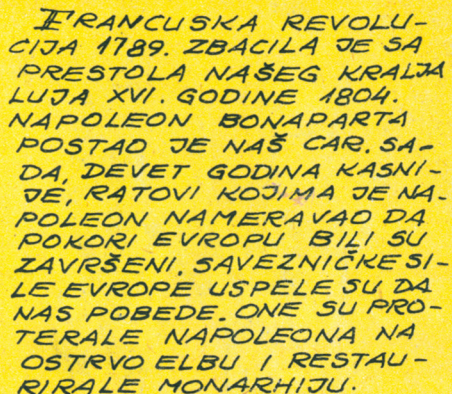 FRANCUSKA REVOLU-
CIJA 1789. ZBACILA JE SA
PRESTOLA NAŠEG KRALJA
LUJA XVI. GODINE 1804.
NAPOLEON BONAPARTA
POSTAO JE NAŠ CAR. SA-
DA, DEVET GODINA KASNI-
JE, RATOVI KOJIMA JE NA-
POLEON NAMERAVAO DA
POKORI EVROPU BILI SU
ZAVRŠENI. SAVEZNIČKE SI-
LE EVROPE USPELE SU DA
NAS POBEDE. ONE SU PRO-
TERALE NAPOLEONA NA
OSTRVO ELBU I RESTAU-
RIRALE MONARHIJU.